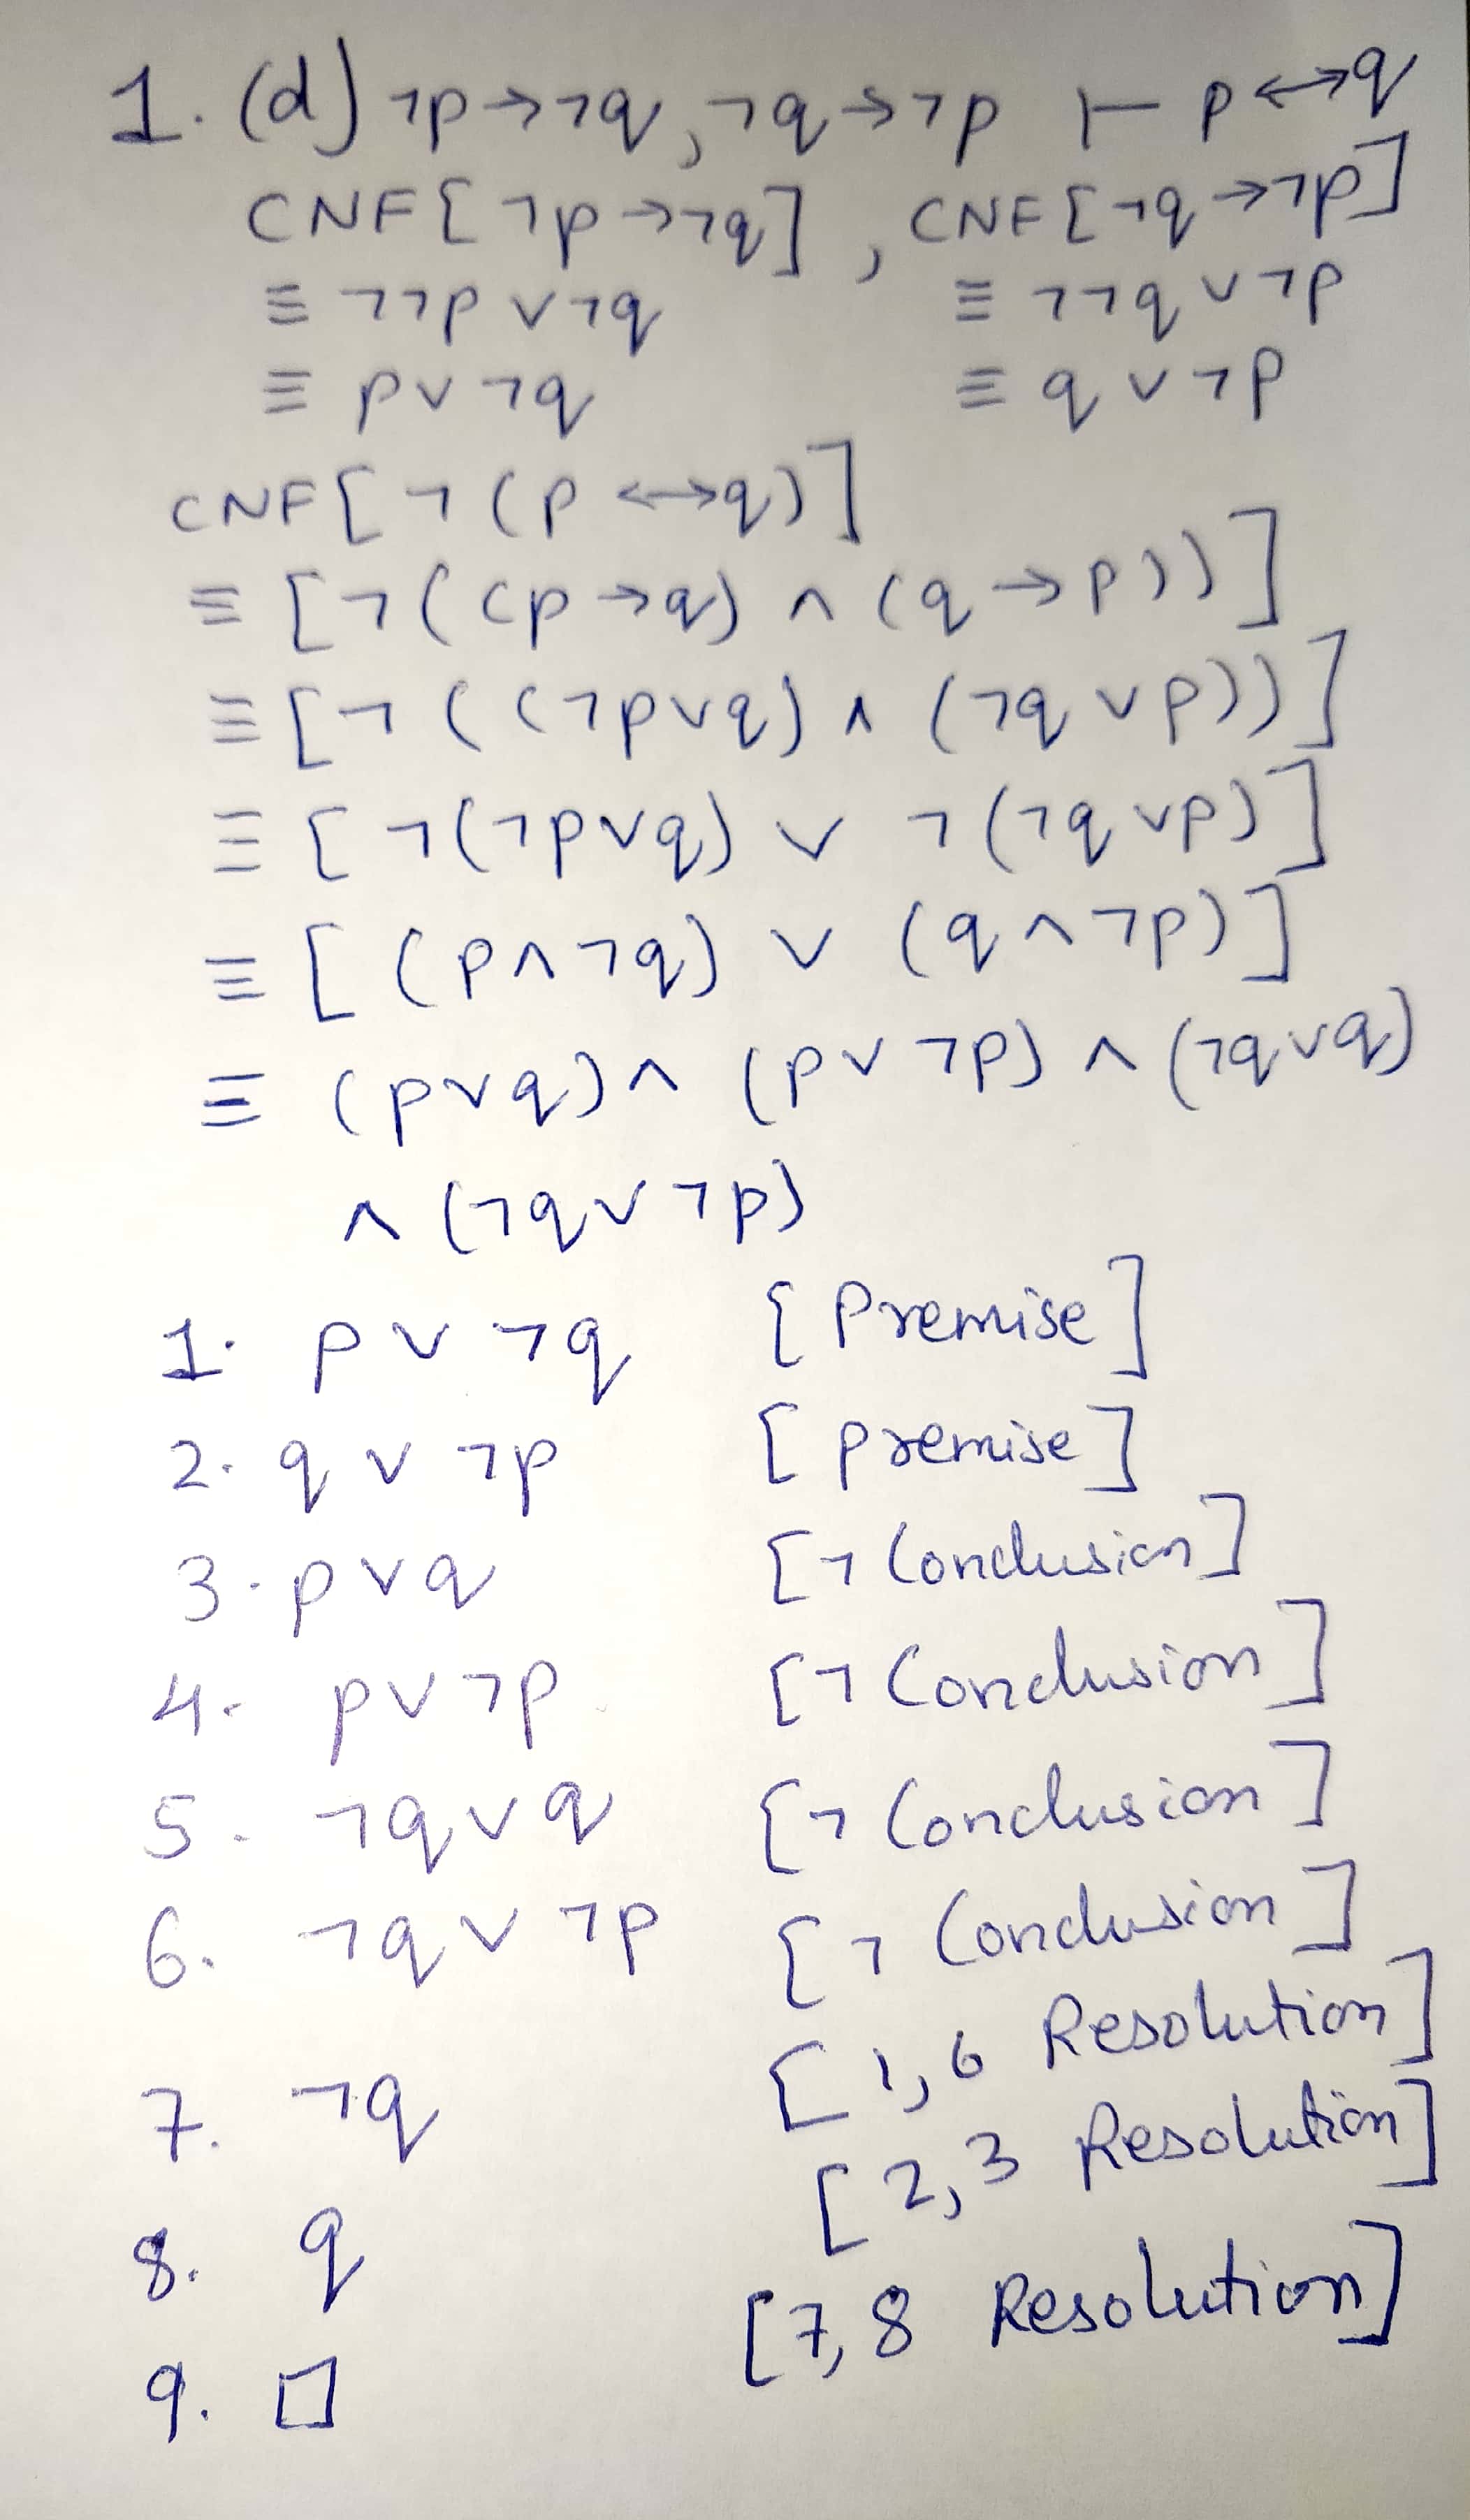 1. (d) ¬p→¬q, ¬q→¬p ⊢ p↔q
CNF[¬p→¬q], CNF[¬q→¬p]
≡ ¬¬p∨¬q ≡ ¬¬q∨¬p
≡ p∨¬q ≡ q∨¬p
CNF[¬(p↔q)]
≡ [¬((p→q)∧(q→p))]
≡ [¬((¬p∨q)∧(¬q∨p))]
≡ [¬(¬p∨q)∨¬(¬q∨p)]
≡ [(p∧¬q)∨(q∧¬p)]
≡ (p∨q)∧(p∨¬p)∧(¬q∨q)
∧(¬q∨¬p)
1. p∨¬q [Premise]
2. q∨¬p [premise]
3. p∨q [¬Conclusion]
4. p∨¬p [¬Conclusion]
5. ¬q∨q [¬Conclusion]
6. ¬q∨¬p [¬Conclusion]
7. ¬q [1,6 Resolution]
8. q [2,3 Resolution]
9. □ [7,8 Resolution]